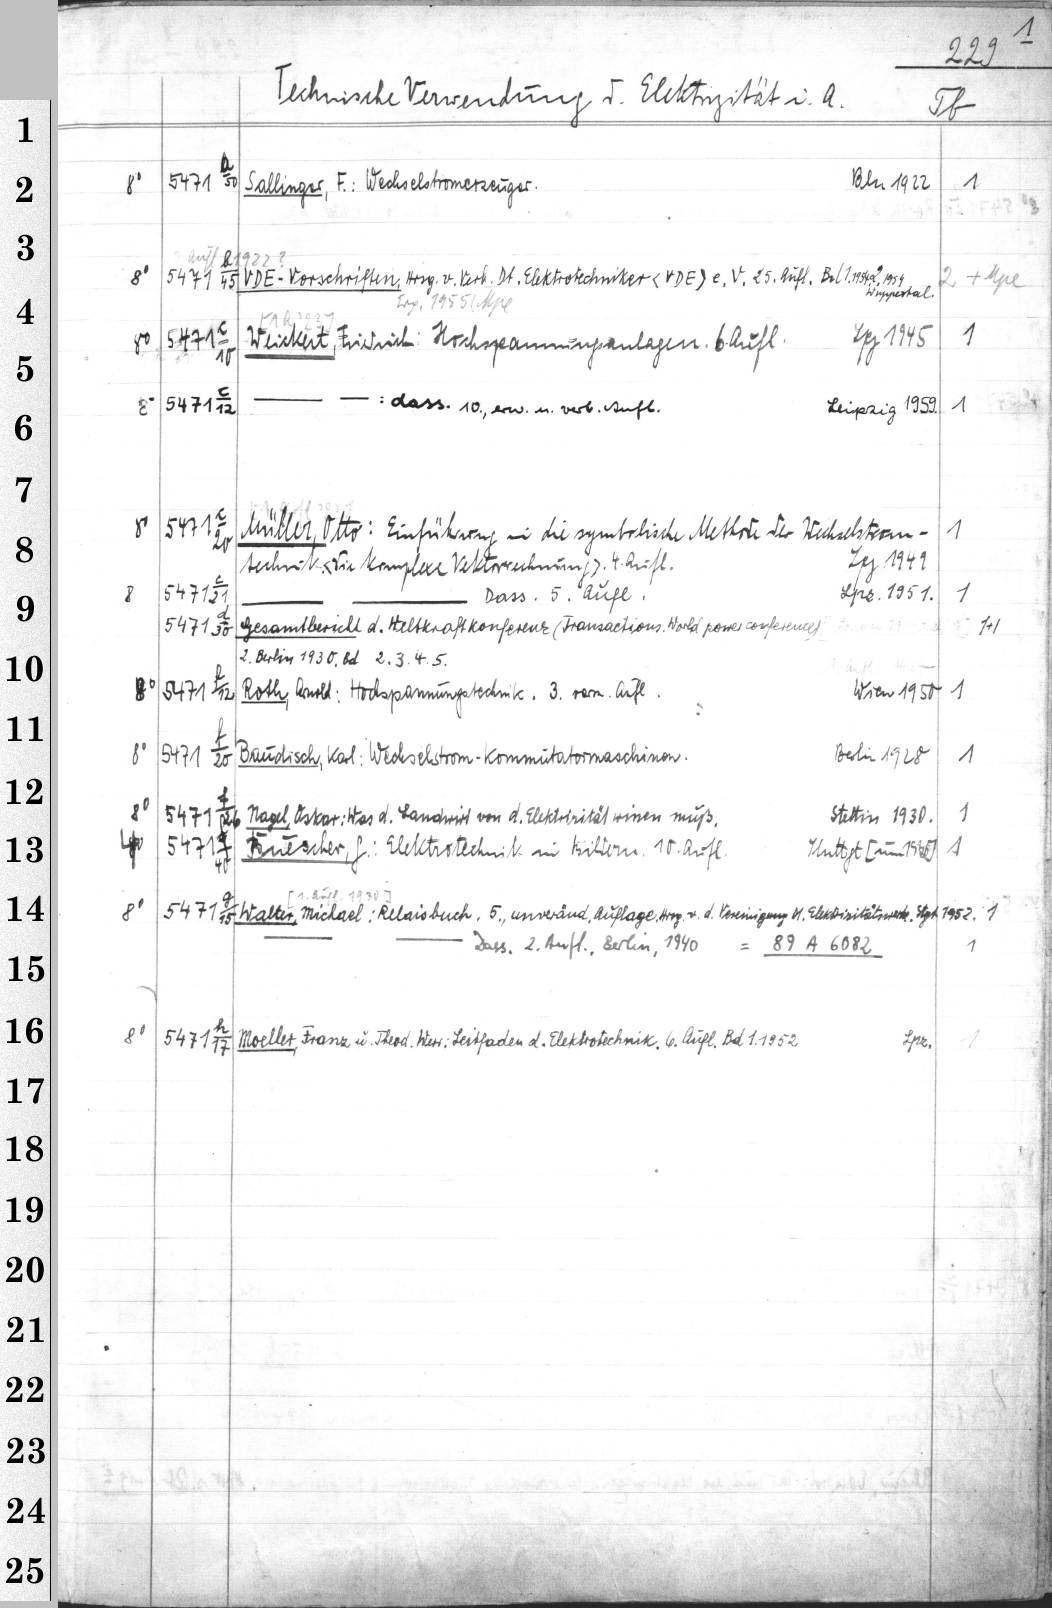 229 1
Technische Verwendung d. Elektrizität i. A.
Tb
1
2
8° 5471 a/50 Sallinger, F.: Wechselstromerzeuger. Bln 1922 1
3
Aufl 1922?
8° 5471 b/45 VDE-Vorschriften, Hrsg. v. Verb. Dt. Elektrotechniker <VDE> e. V. 25. Aufl. Bd 1. 1954 2. 1954 2 + Mpe
Wuppertal.
Erg. 1955 (Mpe
4
8° 5471 c/10 Weickert, Friedrich: Hochspannungsanlagen. 6. Aufl. Lpz 1945 1
5
8° 5471 c/12 — — : dass. 10., erw. u. verb. Aufl. Leipzig 1959. 1
6
7
8° 5471 c/20 Müller, Otto: Einführung in die symbolische Methode der Wechselstrom- 1
8
technik <Die komplexe Vektorrechnung>. 4. Aufl. Lpz 1949
8 5471 c/21 — — Dass. 5. Aufl. Lpz. 1951. 1
9
5471 d/30 Gesamtbericht d. Weltkraftkonferenz (Transactions. World power conference) 1+1
2. Berlin 1930. Bd 2. 3. 4. 5.
10
8° 5471 f/12 Roth, Arnold: Hochspannungstechnik. 3. verm. Aufl. Wien 1950 1
11
8° 5471 f/20 Baudisch, Karl: Wechselstrom-Kommutatormaschinen. Berlin 1928 1
12
8° 5471 f/26 Nagel, Oskar: Was d. Landwirt von d. Elektrizität wissen muß. Stettin 1930. 1
13
5471 f/40 Buescher, G.: Elektrotechnik in Bildern. 10. Aufl. Stuttgt 1
[1. Aufl. 1930]
14
8° 5471 g/15 Walter, Michael: Relaisbuch. 5., unveränd. Auflage. Hrsg. v. d. Vereinigung dt. Elektrizitätswerke. Stgt 1952. 1
— — Dass. 2. Aufl., Berlin, 1940 = 89 A 6082 1
15
16
8° 5471 h/17 Moeller, Franz u. Theod. Werr: Leitfaden d. Elektrotechnik. 6. Aufl. Bd 1. 1952 Lpz. 1
17
18
19
20
21
22
23
24
25